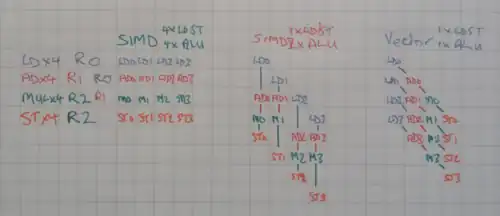 SIMD 4xLDST 4xALU
LDx4 R0 LD0 LD1 LD2 LD3
ADx4 R1 R0 AD0 AD1 AD2 AD3
MULx4 R2 R1 M0 M1 M2 M3
STx4 R2 ST0 ST1 ST2 ST3
SIMD 1xLDST 2xALU
LD0
LD1
AD0 AD1 LD2
M0 M1 LD3
ST0 AD2 AD3
ST1 M2 M3
ST2
ST3
Vector 1xLDST 1xALU
LD0
LD1 AD0
LD2 AD1 M0
LD3 AD2 M1 ST0
AD3 M2 ST1
M3 ST2
ST3